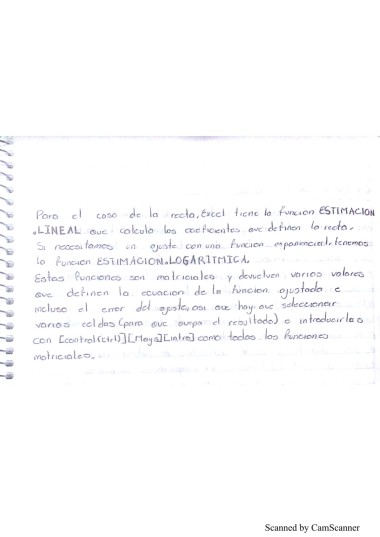 Para el caso de la recta, Excel tiene la funcion ESTIMACION
.LINEAL que calcula los coeficientes que definen la recta.
Si necesitamos un ajuste con una funcion exponencial, tenemos
la funcion ESTIMACION.LOGARITMICA.
Estas funciones son matriciales y devuelven varios valores
que definen la ecuacion de la funcion ajustada e
incluso el error del ajuste, asi que hay que seleccionar
varias celdas (para que quepa el resultado) e introducirlas
con [control(Ctrl)][Mays][intro] como todas las funciones
matriciales.
Scanned by CamScanner